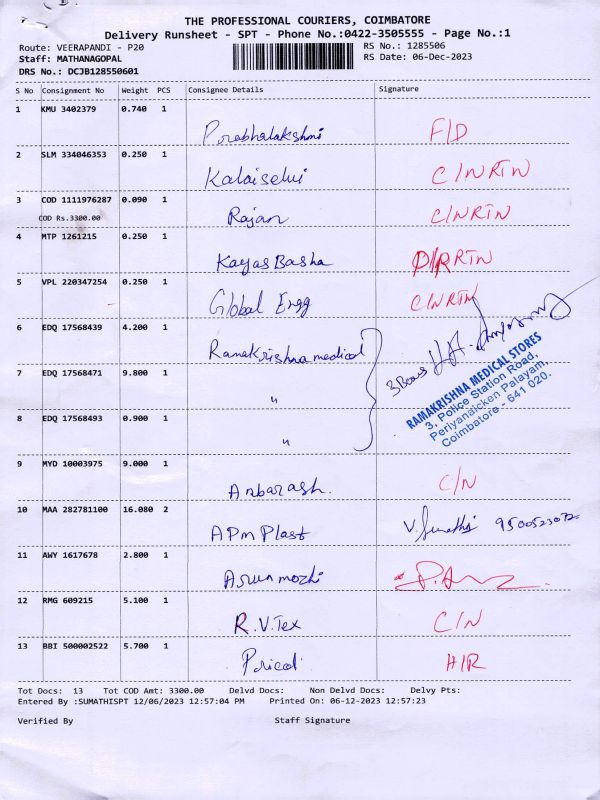 THE PROFESSIONAL COURIERS, COIMBATORE
Delivery Runsheet - SPT - Phone No.:0422-3505555 - Page No.:1
Route: VEERAPANDI - P20 RS No.: 1285506
Staff: MATHANAGOPAL RS Date: 06-Dec-2023
DRS No.: DCJB128550601
S No Consignment No Weight PCS Consignee Details Signature
1 KMU 3402379 0.740 1
Prabhalakshmi F/D
2 SLM 334046353 0.250 1
Kalaiselvi C/NRTN
3 COD 1111976287 0.090 1
COD Rs.3300.00 Rajan C/NRTN
4 MTP 1261215 0.250 1
Kayas Basha D/RRTN
5 VPL 220347254 0.250 1
Global Engg C/NRTN
6 EDQ 17568439 4.200 1
Ramakrishna medical
7 EDQ 17568471 9.800 1
"
8 EDQ 17568493 0.900 1
"
3 Boxes
RAMAKRISHNA MEDICAL STORES
3, Police Station Road,
Periyanaicken Palayam,
Coimbatore - 641 020.
9 MYD 10003975 9.000 1
Anbarash. C/N
10 MAA 282781100 16.080 2
APM Plast V. Sumathi
11 AWY 1617678 2.800 1
Arunmozhi
12 RMG 609215 5.100 1
R.V.Tex C/N
13 BBI 500002522 5.700 1
Pricol H/R
Tot Docs: 13 Tot COD Amt: 3300.00 Delvd Docs: Non Delvd Docs: Delvy Pts:
Entered By :SUMATHISPT 12/06/2023 12:57:04 PM Printed On: 06-12-2023 12:57:23
Verified By Staff Signature